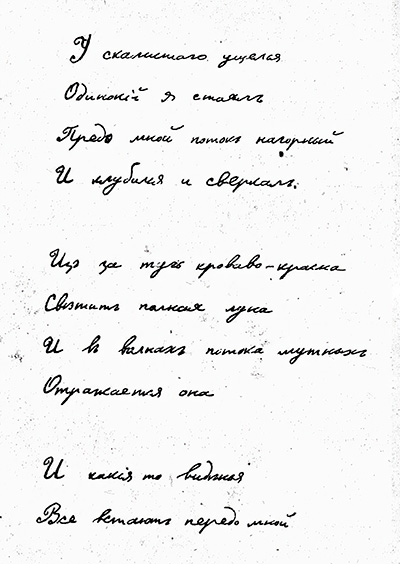 У скалистаго ущелья
Одинокій я стоялъ
Предо мной потокъ нагорный
И клубился и сверкалъ.
Изъ за тучъ кроваво-красна
Свѣтитъ полная луна
И въ волнахъ потока мутныхъ
Отражается она
И какія то видѣнья
Все встаютъ передо мной